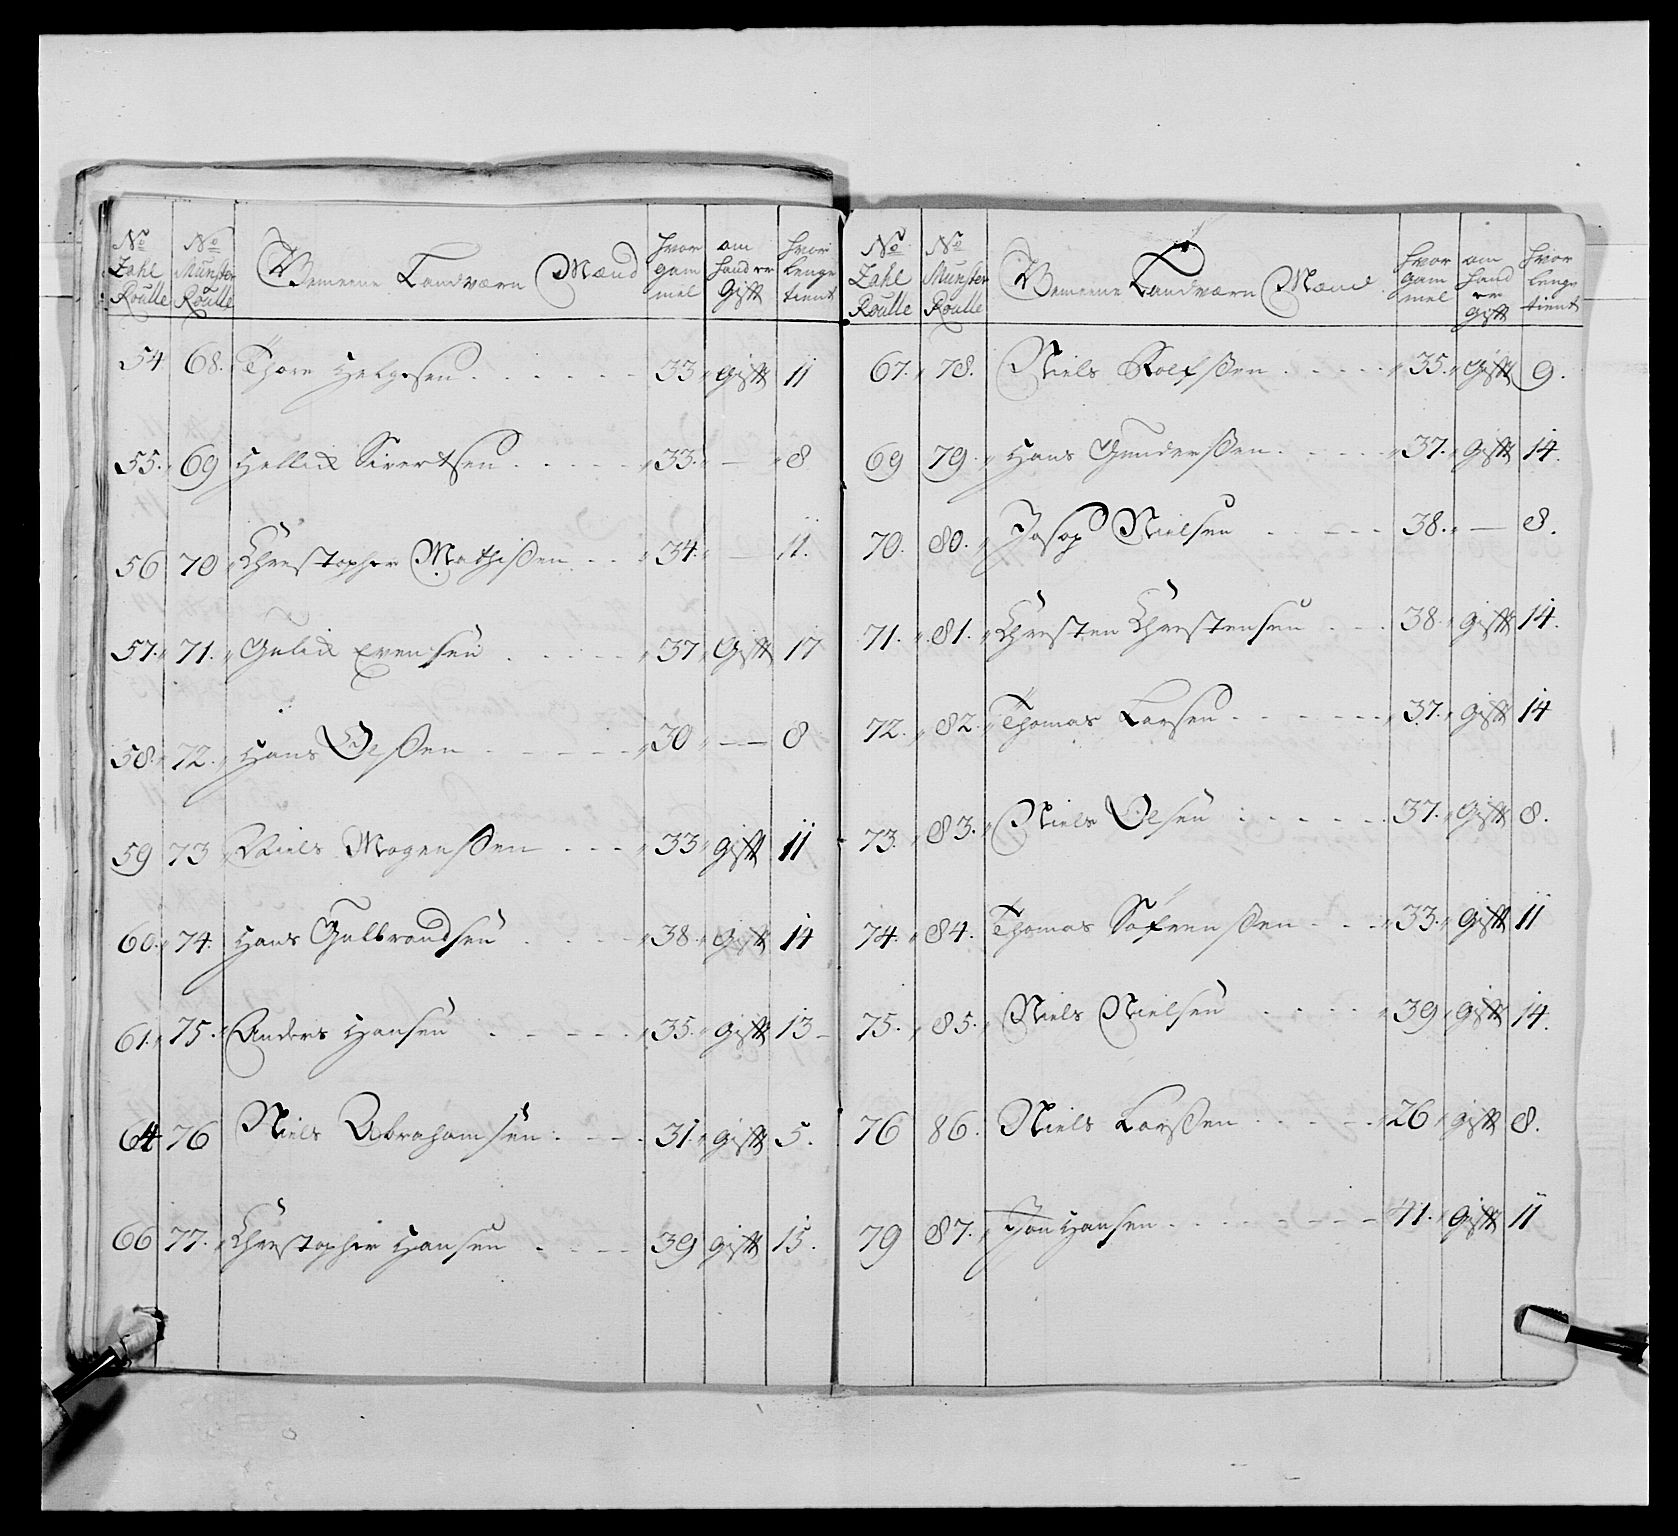 No Zahl Roulle | No Munster Roulle | Gemeene Landværn Mænd | hvor gam mel | om hand er Gift | hvor lenge tient
54 68. Thore Helgesen 33 Gift 11
55. 69 Hellick Sivertsen 33. — 8
56 70 Christopher Mathissen 34. — 11.
57. 71. Gulick Evensen 37 Gift 17
58. 72. Hans Olssen 30 — 8
59 73 Niels Mogenssen 33 gift 11
60. 74. Hans Gulbrandsen 38. Gift 14
61. 75. Anders Hansen 35. gift 13
64 76 Niels Abrahamsen 31. gift 5.
66 77. Christopher Hansen 39 gift 15.
No Zahl Roulle | No Munster Roulle | Gemeene Landværn Mænd | hvor gam mel | om hand er gift | hvor lenge tient
67. 78. Niels Rolfssen 35. Gift 9.
69 79. Hans Gunderssen 37. gift 14.
70. 80. Josop Nielsen 38. — 8.
71. 81. Christen Christensen 38. gift 14.
72. 82. Thomas Larsen 37. gift 14
73. 83. Niels Olsen 37. Gift 8.
74. 84. Thomas Söfrenssen 33. gift 11
75. 85. Niels Nielsen 39 gift 14.
76 86. Niels Larssen 26 gift 8.
79 87. Jon Hansen 41. Gift 11